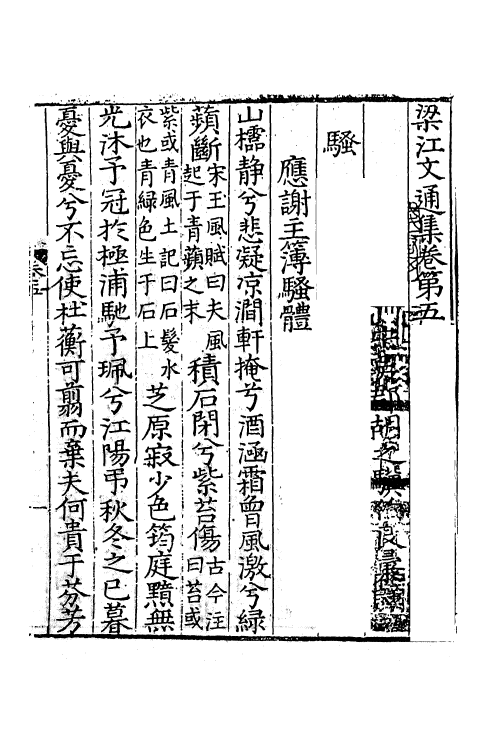 梁江文通集卷第五
騷
應謝主簿騷體
山檽静兮悲凝凉澗軒掩兮酒涵霜曾風激兮緑
蘋斷宋玉風賦曰夫風起于青蘋之末積石閉兮紫苔傷古今注曰苔或
紫或青風土記曰石髮水衣也青緑色生于石上芝原寂少色筠庭黯無
光沐予冠於極浦馳予珮兮江陽弔秋冬之已暮
憂與憂兮不忘使杜蘅可翦而棄夫何貴于芬芳